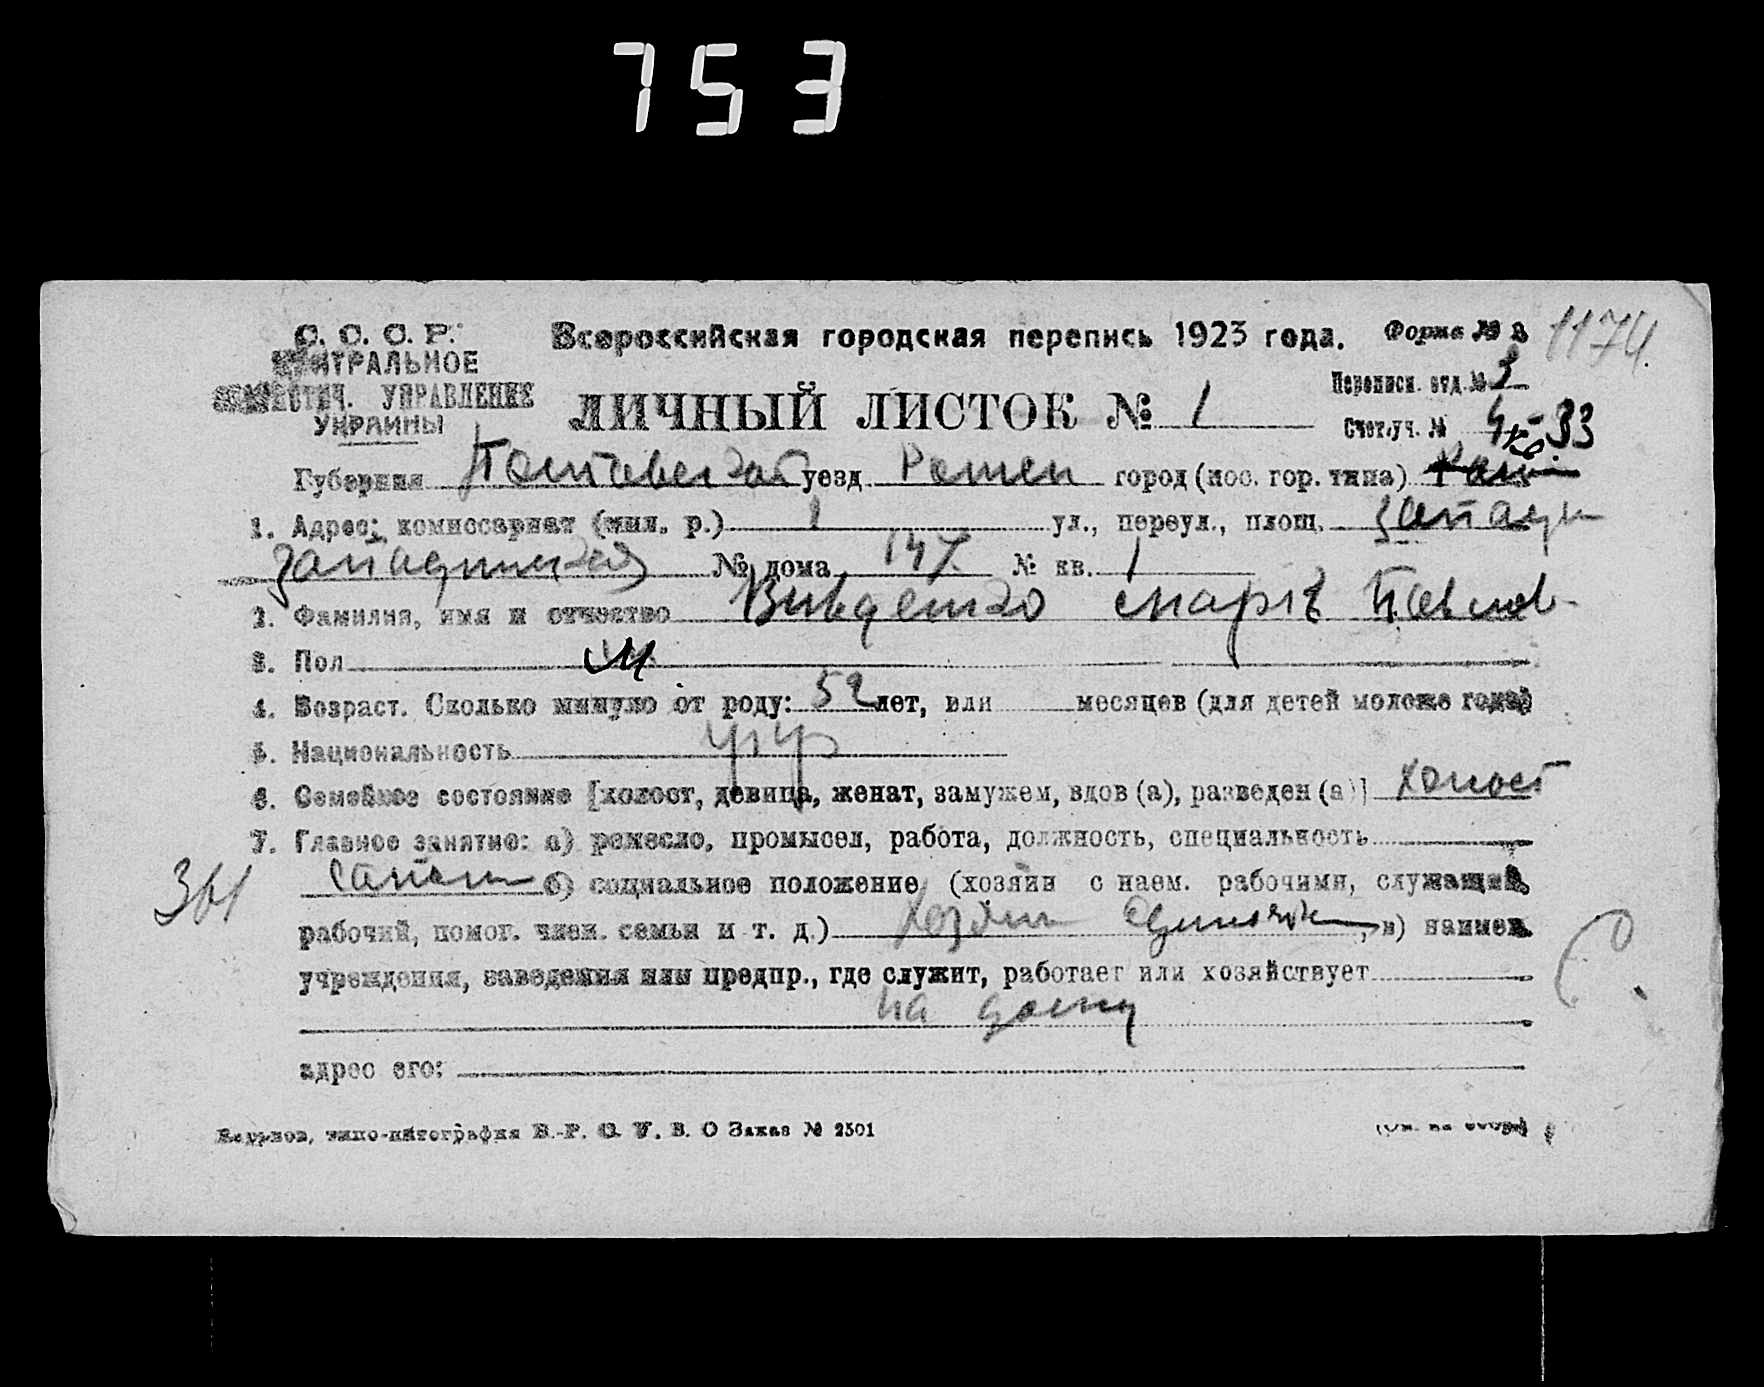 753
С. С. С. Р.
ЦЕНТРАЛЬНОЕ
СТАТИСТИЧ. УПРАВЛЕНИЕ
УКРАИНЫ
Всероссийская городская перепись 1923 года. Форма № 3 1174.
ЛИЧНЫЙ ЛИСТОК № 1
Переписн. отд. № 3
Счет. уч. № 33
Губерния Полтавская уезд Ромен город (пос. гор. типа)
1. Адрес: комиссариат (мил. р.) 1 ул., переул., площ.
№ дома 147 № кв. 1
2. Фамилия, имя и отчество Павлов
3. Пол М
4. Возраст. Сколько минуло от роду: 52 лет, или месяцев (для детей моложе года)
5. Национальность укр
6. Семейное состояние [холост, девица, женат, замужем, вдов (а), разведен (а)] холост
7. Главное занятие: а) ремесло, промысел, работа, должность, специальность
361 сапож б) социальное положение (хозяин с наем. рабочими, служащий,
рабочий, помог. член. семьи и т. д.) хозяин одиночка, в) наимен.
учреждения, заведения или предпр., где служит, работает или хозяйствует
на дому
адрес его:
типо-литография В.-Р. О. У. В. О Заказ № 2501